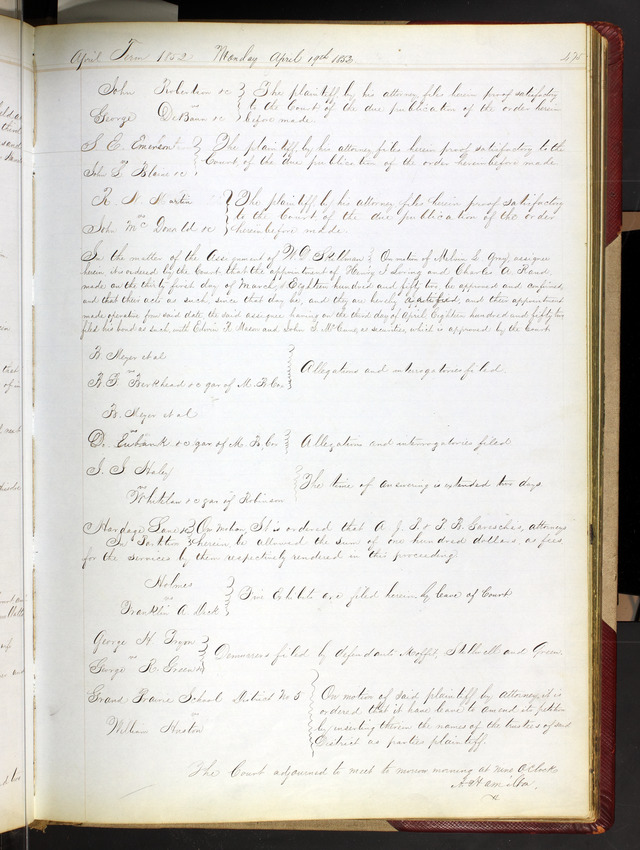 April Term 1852 Monday April 19th 1852 475
John Robertson &c } The plaintiff by his attorney files herein proof satisfactory
vs } to the Court of the due publication of the order herein
George DeBaun &c } before made
S. E. Emerson } The plaintiff by his attorney files herein proof satisfactory to the
vs } Court of the due publication of the order hereinbefore made
John T. Blaine &c
R. N. Martin } The plaintiff by his attorney files herein proof satisfactory
vs } to the Court of the due publication of the order
John McDonald &c } hereinbefore made.
In the matter of the Assignment of WD Skillman } On motion of Melvin L. Gray, assignee
herein it is ordered by the Court that the appointment of Henry S Loring and Charles A. Rand
made on the thirty first day of March Eighteen hundred and fifty two be approved and confirmed,
and that their acts as such, since that day be, and they are hereby ratified, and their appointment
made operative from said date, the said assignee having on the third day of April Eighteen hundred and fifty two
filed his bond as such, with Edwin R. Mason and John S. McCune, as securities, which is approved by the Court
B. Meyer et al
vs } Allegations and interrogatories filed.
R. F. Burkhead &c gar of M. B. Cox
B. Meyer et al
vs
D. Eubank &c gar of M. B. Cox } Allegations and interrogatories filed
J. S. Haley
vs } The time of answering is extended two days
Whitelaw &c gar of Robinson
Hardage Lane &c } On motion, It is ordered that A. J. P. & P. B. Garesches, attorneys
In Partition } herein, be allowed the sum of one hundred dollars, as fees
for the services by them respectively rendered in this proceeding
Holmes
vs } Five Exhibits are filed herein by leave of Court
Franklin A. Dick
George H. Tyson
vs } Demurrers filed by defendants Moffit, Stillwell and Green
George R. Green &c
Grand Prairie School District No 3 } On motion of said plaintiff by attorney it is
vs } ordered that it have leave to amend its petition
William Horton } by inserting therein the names of the trustees of said
District as parties plaintiff.
The Court adjourned to meet to morrow morning at nine O'Clock
A. Hamilton